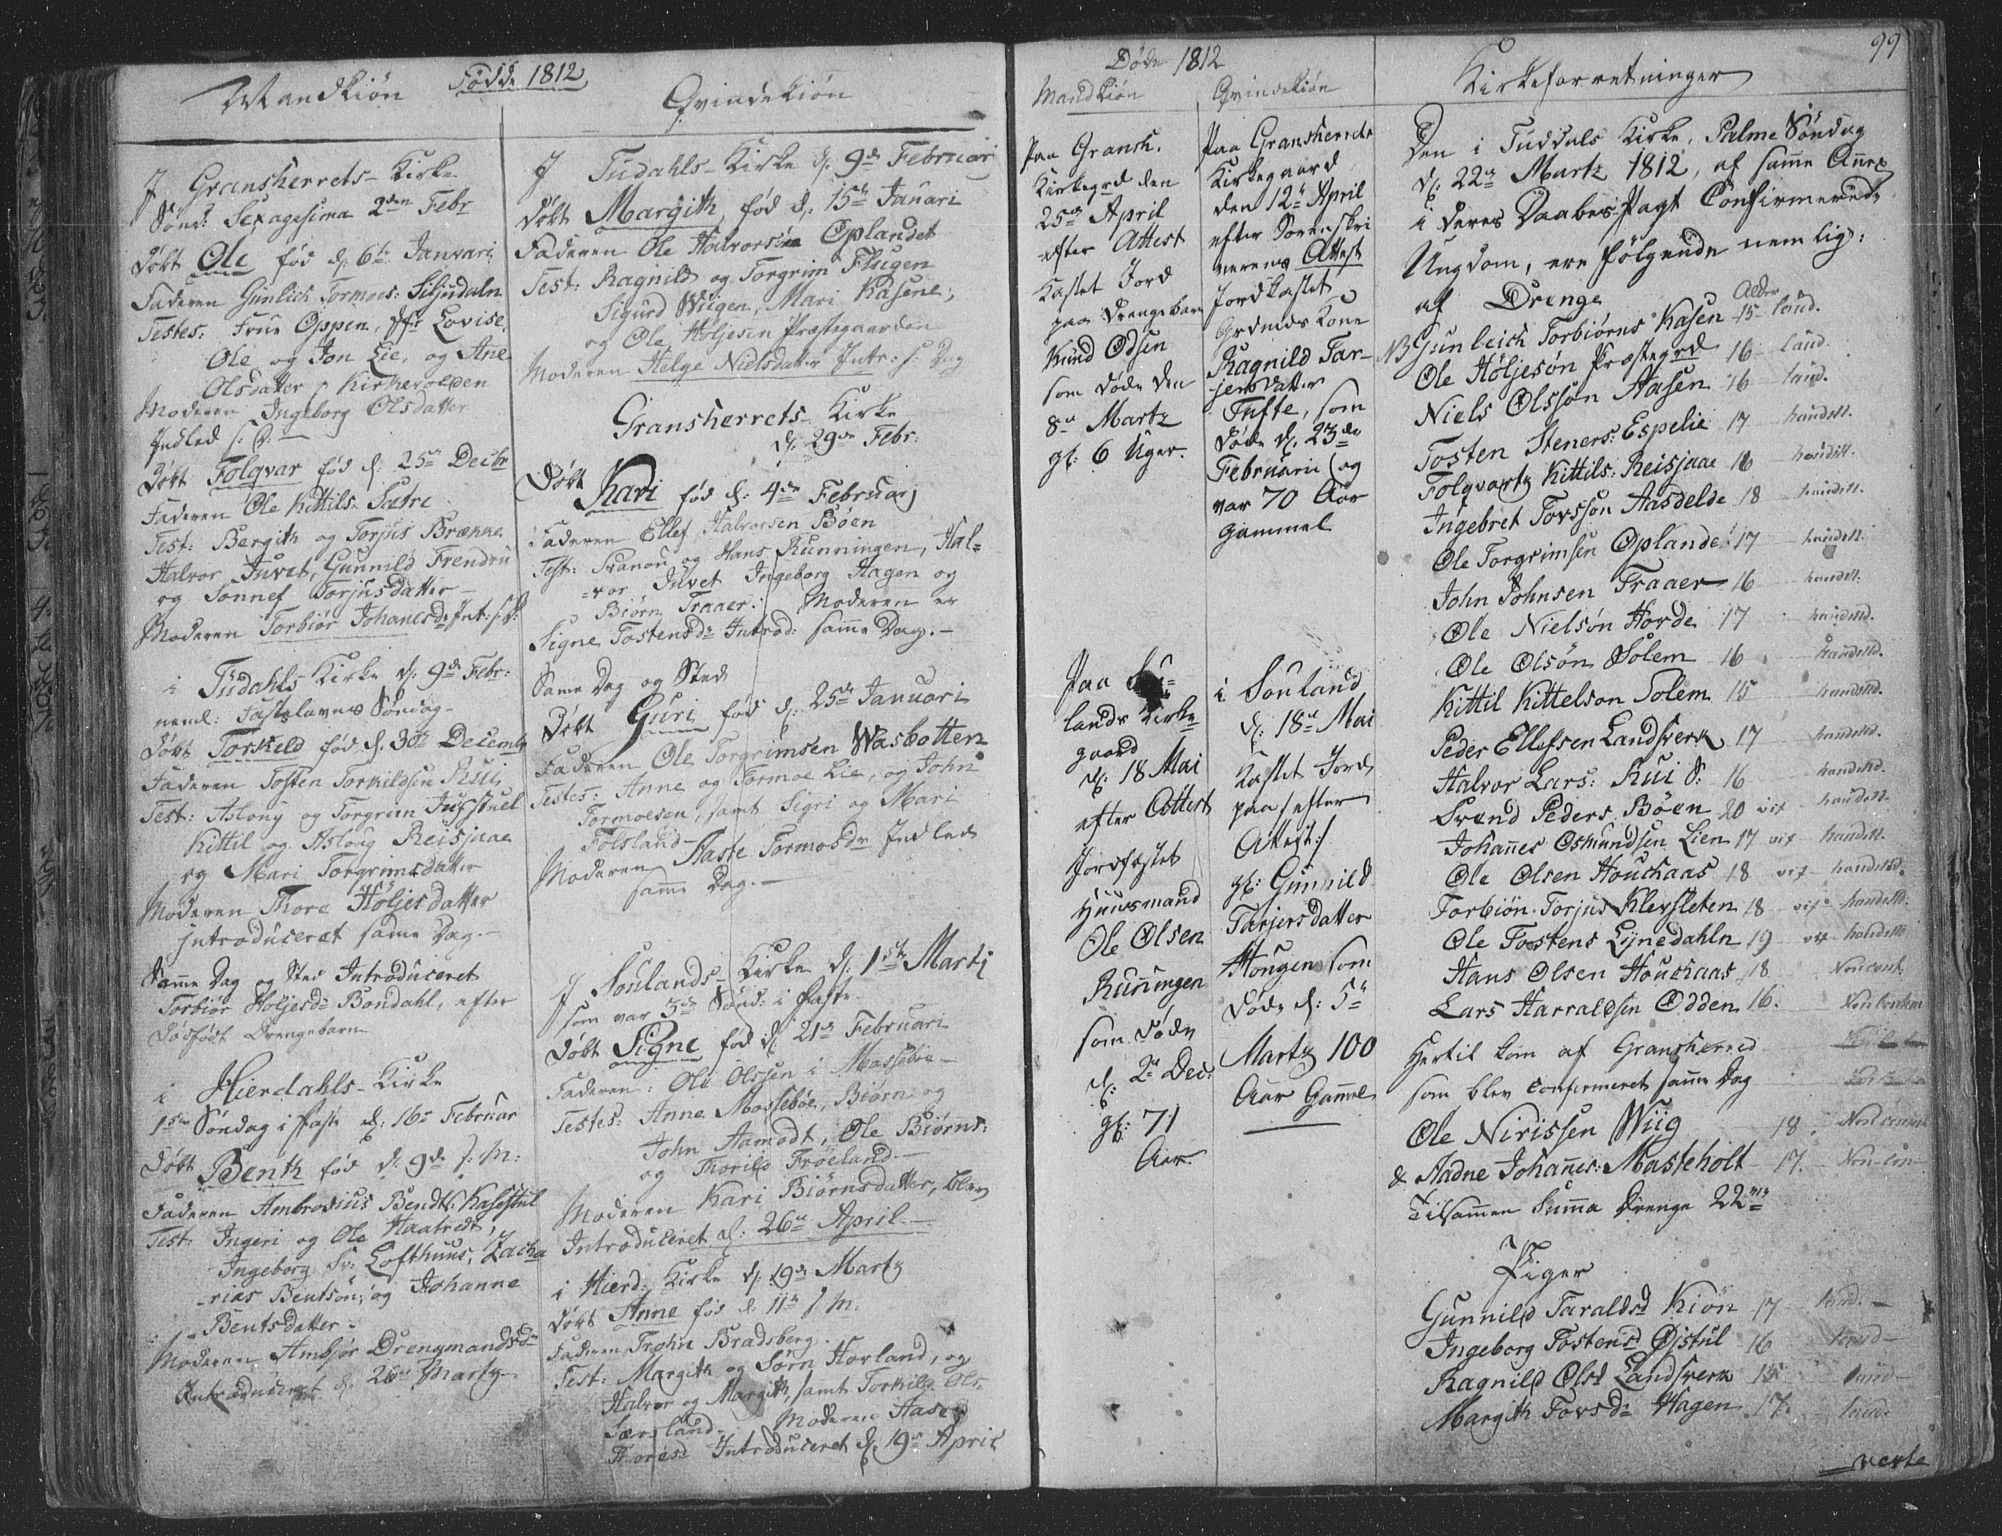 Födde 1812
Mandkiön
I Gransherrets Kirke
Sönd: Sexagesima 2den Febr
Döbt Ole föd d: 6te Januari
Faderen Gunlich Tormos: Siljudaln
Testes: Frue Oppen, Lovise,
Ole og Jon Lie, og Ane
Olsdatter Kirkevolden
Moderen Ingeborg Olsdatter
Indled s. D.
Döbt Folqvar föd d: 25de Decbr
Faderen Ole Kittils: Sætre
Test: Bergith og Torjus Brænne
Halvor Juvet, Gunnild Frendru
og Sonnef Torjusdatter
Moderen Torbiör Johanesd: Int: s. D:
i Tudahls Kirke d: 9de Febr:
neml: Fastelavns Söndag
Döbt Torkeld föd d. 30te Decemb
Faderen Tosten Torkildsen Rui,
Test: Asloug og Torgrim
Kittil og Asloug Reisjaae
og Mari Torgrimsdatter
Moderen Thore Höljesdatter
introduceret samme Dag.
Samme Dag og Sted Introduceret
Torbiör Höljesd: Bondahl, efter
dödfödt Drengebarn
i Hierdahls Kirke
1ste Söndag i Faste d: 16de Februar
Döbt Benth föd d: 9de s. M:
Faderen Ambrosius Bendts:
Test: Ingeri og Ole Haatvedt,
Ingeborg Lofthuus, Zacha
rias Bentsön, og Johanne
Bentsdatter
Moderen Ambjör Drengmandsd:
Introduceret d: 26de Martz
Qvindekiön
I Tudahls Kirke d: 9de Februari
Döbt Margith föd d: 15de Januari
Faderen Ole Halvorsön Oplandet
Test: Ragnild og Torgrim Flugen
Sigurd Wiigen, Mari Kasene,
og Ole Höljesen Præstegaarden
Moderen Helge Nielsdatter Intr: s: Dag
Gransherrets Kirke
d: 29de Febr:
Döbt Kari föd d: 4de Februarj
Faderen Ellef Halvorsen Böen
Test: Svanou og Hans Runningen, Hal-
vor Juvet Ingeborg Hagen og
Biörn Traaer: Moderen er
Signe Tostensd: Introd: samme Dag.
Same Dag og Sted
Döbt Guri föd d: 25de Januari
Faderen Ole Torgrimsen Wasbotten
Testes: Anne og Tormoe Lie, og John
Tormoesen, samt Sigri og Mari
Folsland
Moderen Aaste Tormosd: Indled
samme Dag.
I Soulands Kirke d: 1ste Martj
som var 3de Sönd: i Faste
Döbt Signe föd d: 21de Februari
Faderen: Ole Olssen i Mosseböe
Testes: Anne Mosseböe, Biörn og
John Aamodt, Ole Biörns:
og Thorild Fröeland.
Moderen Kari Biörnsdatter, blev
Introduceret d: 26de April.
i Hierd: Kirke d: 19de Martz
Döbt Anne föd d: 11te s. M:
Faderen Trohn Bradsberg.
Test: Margith og Sörn Horland, og
Halvor og Margith, samt Torkild Ols
Sæesland. Moderen Aase
Thoresd Introduceret d. 19de April
Döde 1812
Mandkiön
Paa Gransh.
Kirkegrd den
25de April
efter Attest
Kastet Jord
paa Drengebarn
Knud Odsen
som döde den
8de Martz
gl: 6 Uger.
Paa Sou-
lands Kirke
gaard
d: 18 Mai
efter Attest
Jordfæstet
Huusmand
Ole Olsen
Runningen
som döde
d: 2de Dec:
gl: 71
Aar.
Qvindekiön
Paa Gransherrets
Kirkegaard
den 12te April
efter Sorenskri
verens Attest
Jordkastet
Grdmds Kone
Ragnild Tar-
jersdatter
Tufte, som
döde d: 23de
Februarii (og
var 70 Aar
gammel
i Souland
d: 18de Mai
Kastet Jord
paa /efter
Attest:/
gl: Gunnild
Tarjersdatter
Hougen som
döde d: 5te
Martz 100
Aar Gamel
99
Kirkeforretninger
Den i Tuddals Kirke, Palme Söndag
d: 22de Martz 1812, af samme Annex
i deres Daabes Pagt Confirmerede
Ungdom, ere Fölgende nemlig:
af Drenge Alder
NB Gunleich Torbiörns Kasen 15
Ole Höljesön Præstegrd 16
Niels Olssön Aasen 16
Tosten Steners: Espelie 17
Folqvartz Kittils: Reisjaae 16
Ingebret Tovssön Aasdelde 18
Ole Torgrimsen Oplande 17
John Johnsen Traaer 16
Ole Nielsön Horde 17
Ole Olsön Solem 16
Kittil Kittelson Solem 15
Peder Ellefsen Landsverk 17
Halvor Lars: Rui S: 16
Svend Peders. Böen 20
Johannes Osmundsen Lien 17
Ole Olsen Houchaas 18
Torbiön Torjus Klevsleten 18
Ole Tostens Lijnedahln 19
Hans Olsen Houchaas 18
Lars Harraldsen Odden 16.
Hertil kom af Gransherred
som blev confirmeret samme Dag
Ole Nirissen Wiig 18.
& Aadne Johannes: Masteholt 17.
Tilsammen Summa Drenge 22
Piger
Gunnild Taraldsd Kiön 17
Ingeborg Tostensd Öjstul 16
Ragnild Olsd Landsverk 15
Margith Tovsd: Hagen 17.
verte